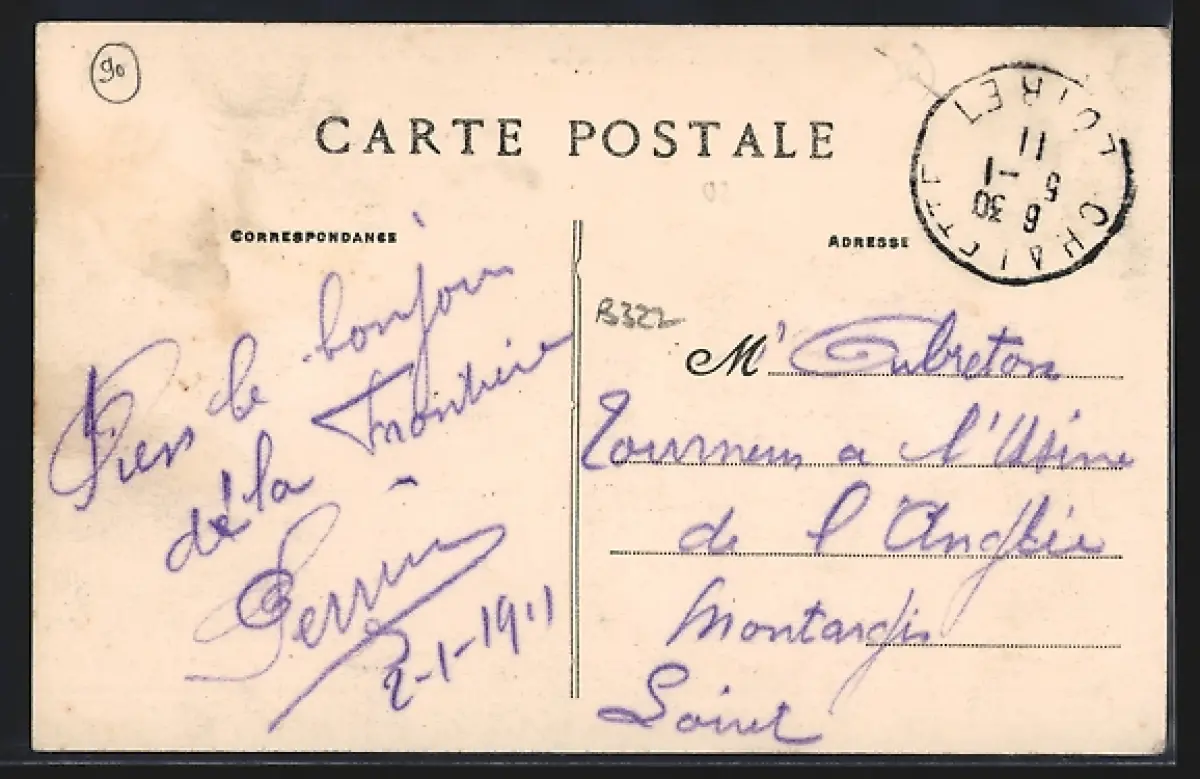 90
CARTE POSTALE
CORRESPONDANCE
ADRESSE
CHALETTE LOIRET
6 30
5 -1
11
B322
le bonjour
de la Frontière
Perrin
2-1-1911
Mr Aubreton
Tourneur a l'Usine
de l'Anglée
Montargis
Loiret